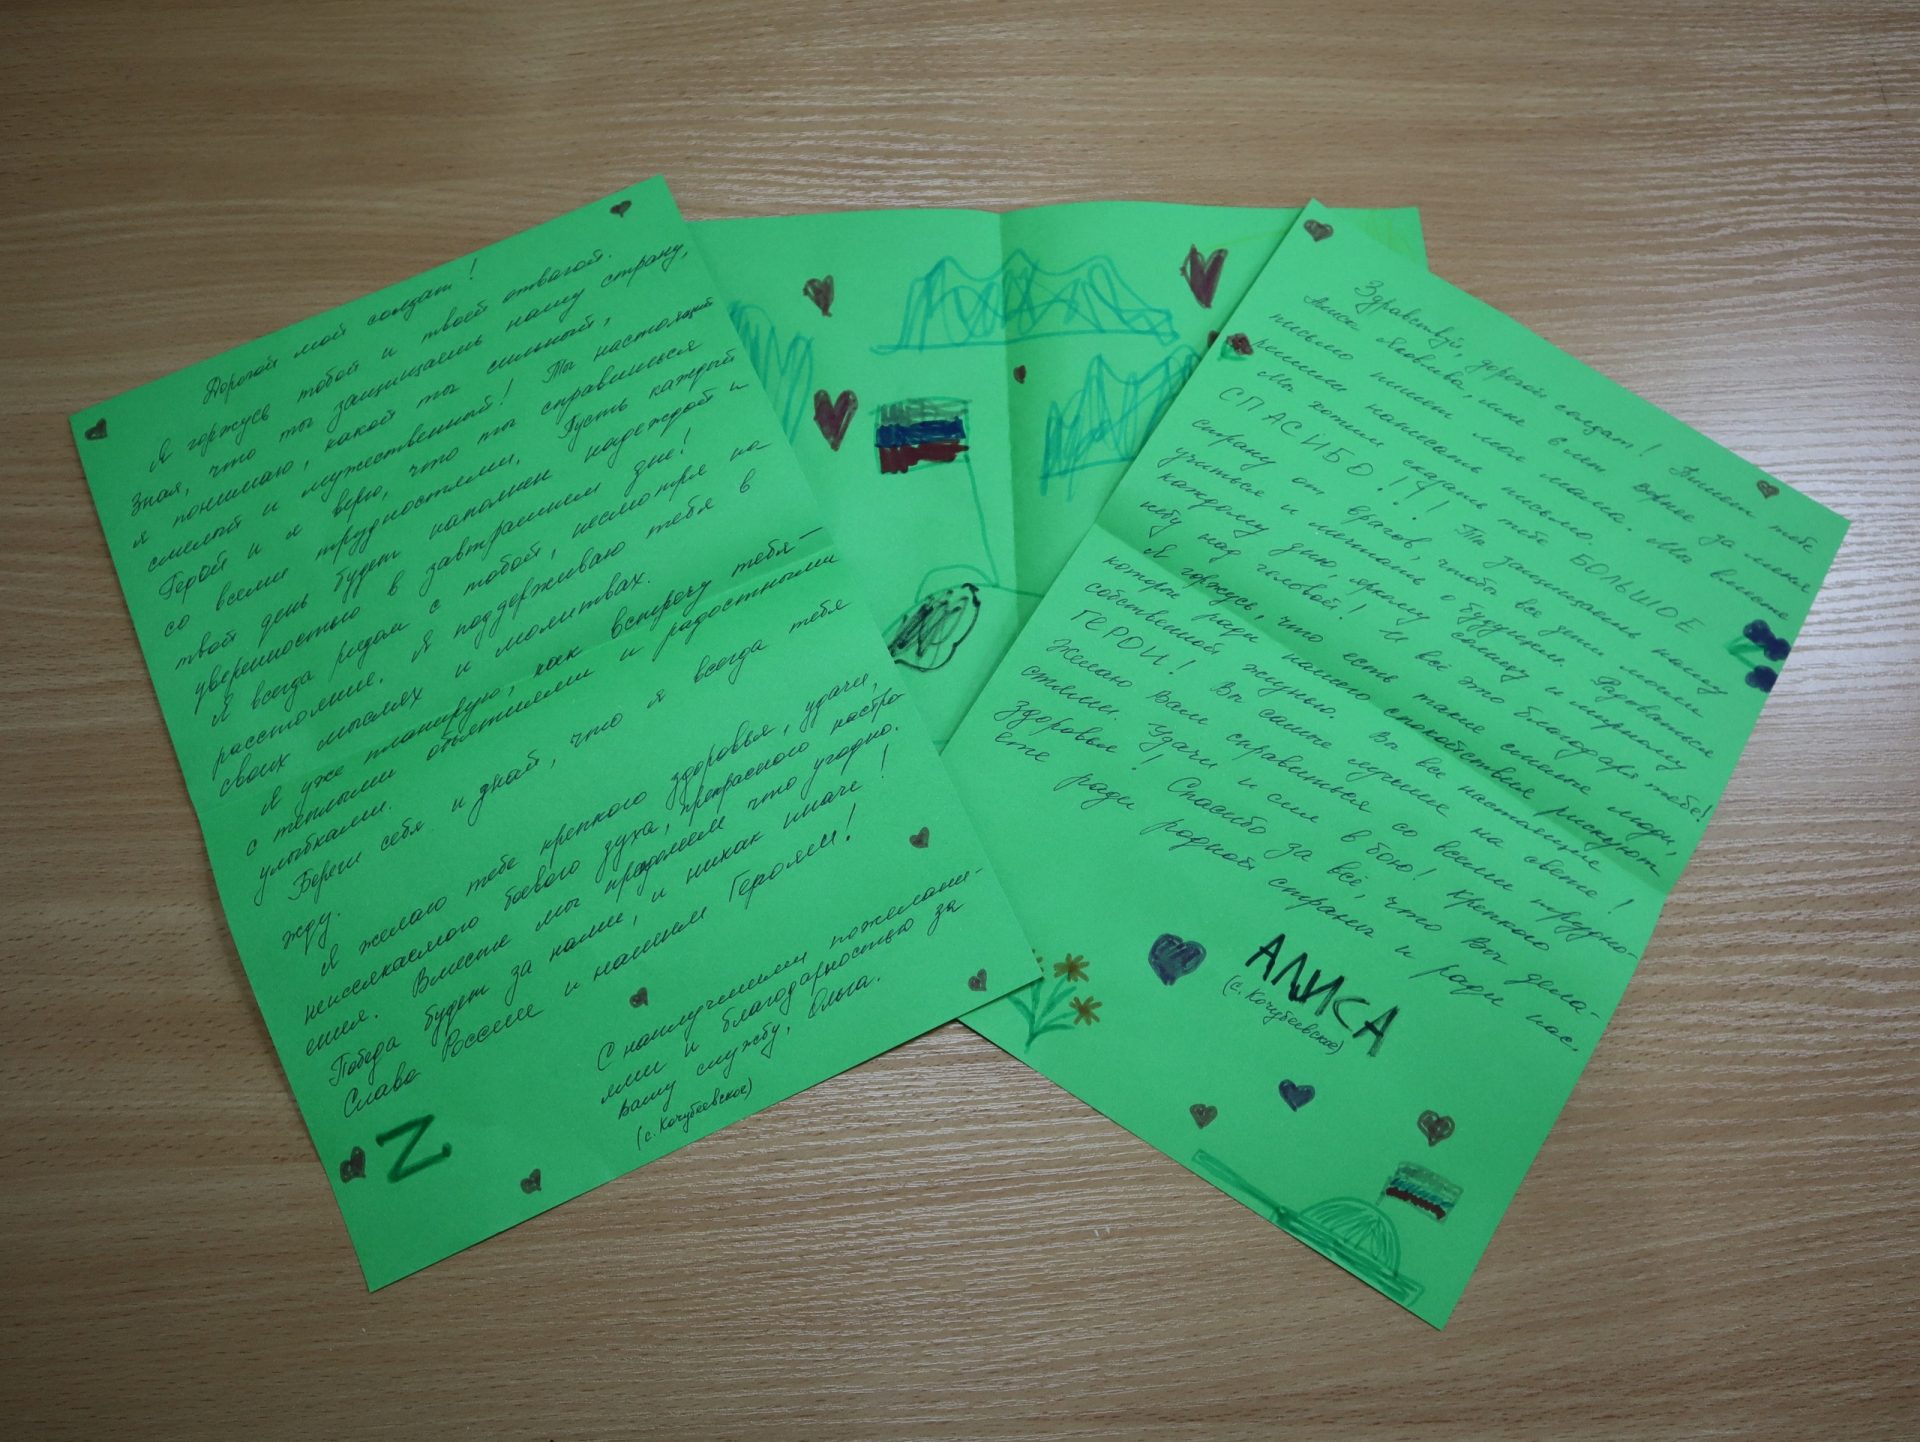 Дорогой мой солдат!
Я горжусь тобой и твоей отвагой.
Зная, что ты защищаешь нашу страну,
я понимаю, какой ты сильный,
смелый и мужественный! Ты настоящий
Герой и я верю, что ты справишься
со всеми трудностями. Пусть каждый
твой день будет наполнен надеждой и
уверенностью в завтрашнем дне!
Я всегда рядом с тобой, несмотря на
расстояние. Я поддерживаю тебя в
своих мыслях и молитвах.
Я уже планирую, как встречу тебя -
с тёплыми объятиями и радостными
улыбками.
Береги себя и знай, что я всегда тебя
жду.
Я желаю тебе крепкого здоровья, удачи,
неиссякаемого боевого духа, прекрасного настро
ения. Вместе мы преодолеем что угодно.
Победа будет за нами, и никак иначе!
Слава России и нашим Героям!
С наилучшими пожелани-
ями и благодарностью за
вашу службу, Ольга.
(с. Кочубеевское)
Z
Здравствуй, дорогой солдат! Пишет тебе
Алиса Яковлева, мне 5 лет. Вернее за меня
письмо пишет моя мама. Мы вместе
решили написать письмо.
Мы хотим сказать тебе БОЛЬШОЕ
СПАСИБО!!! Ты защищаешь нашу
страну от врагов, чтобы все дети могли
учиться и мечтать о будущем. Радоваться
каждому дню, яркому солнцу и мирному
небу над головой! И всё это благодаря тебе!
Я горжусь, что есть такие смелые люди,
которые ради нашего спокойствия рискуют
собственной жизнью. Вы все настоящие
ГЕРОИ! Вы самые лучшие на свете!
Желаю Вам справиться со всеми трудно-
стями. Удачи и сил в бою! Крепкого
здоровья! Спасибо за всё, что Вы дела-
ете ради родной страны и ради нас.
АЛИСА
(с. Кочубеевское)